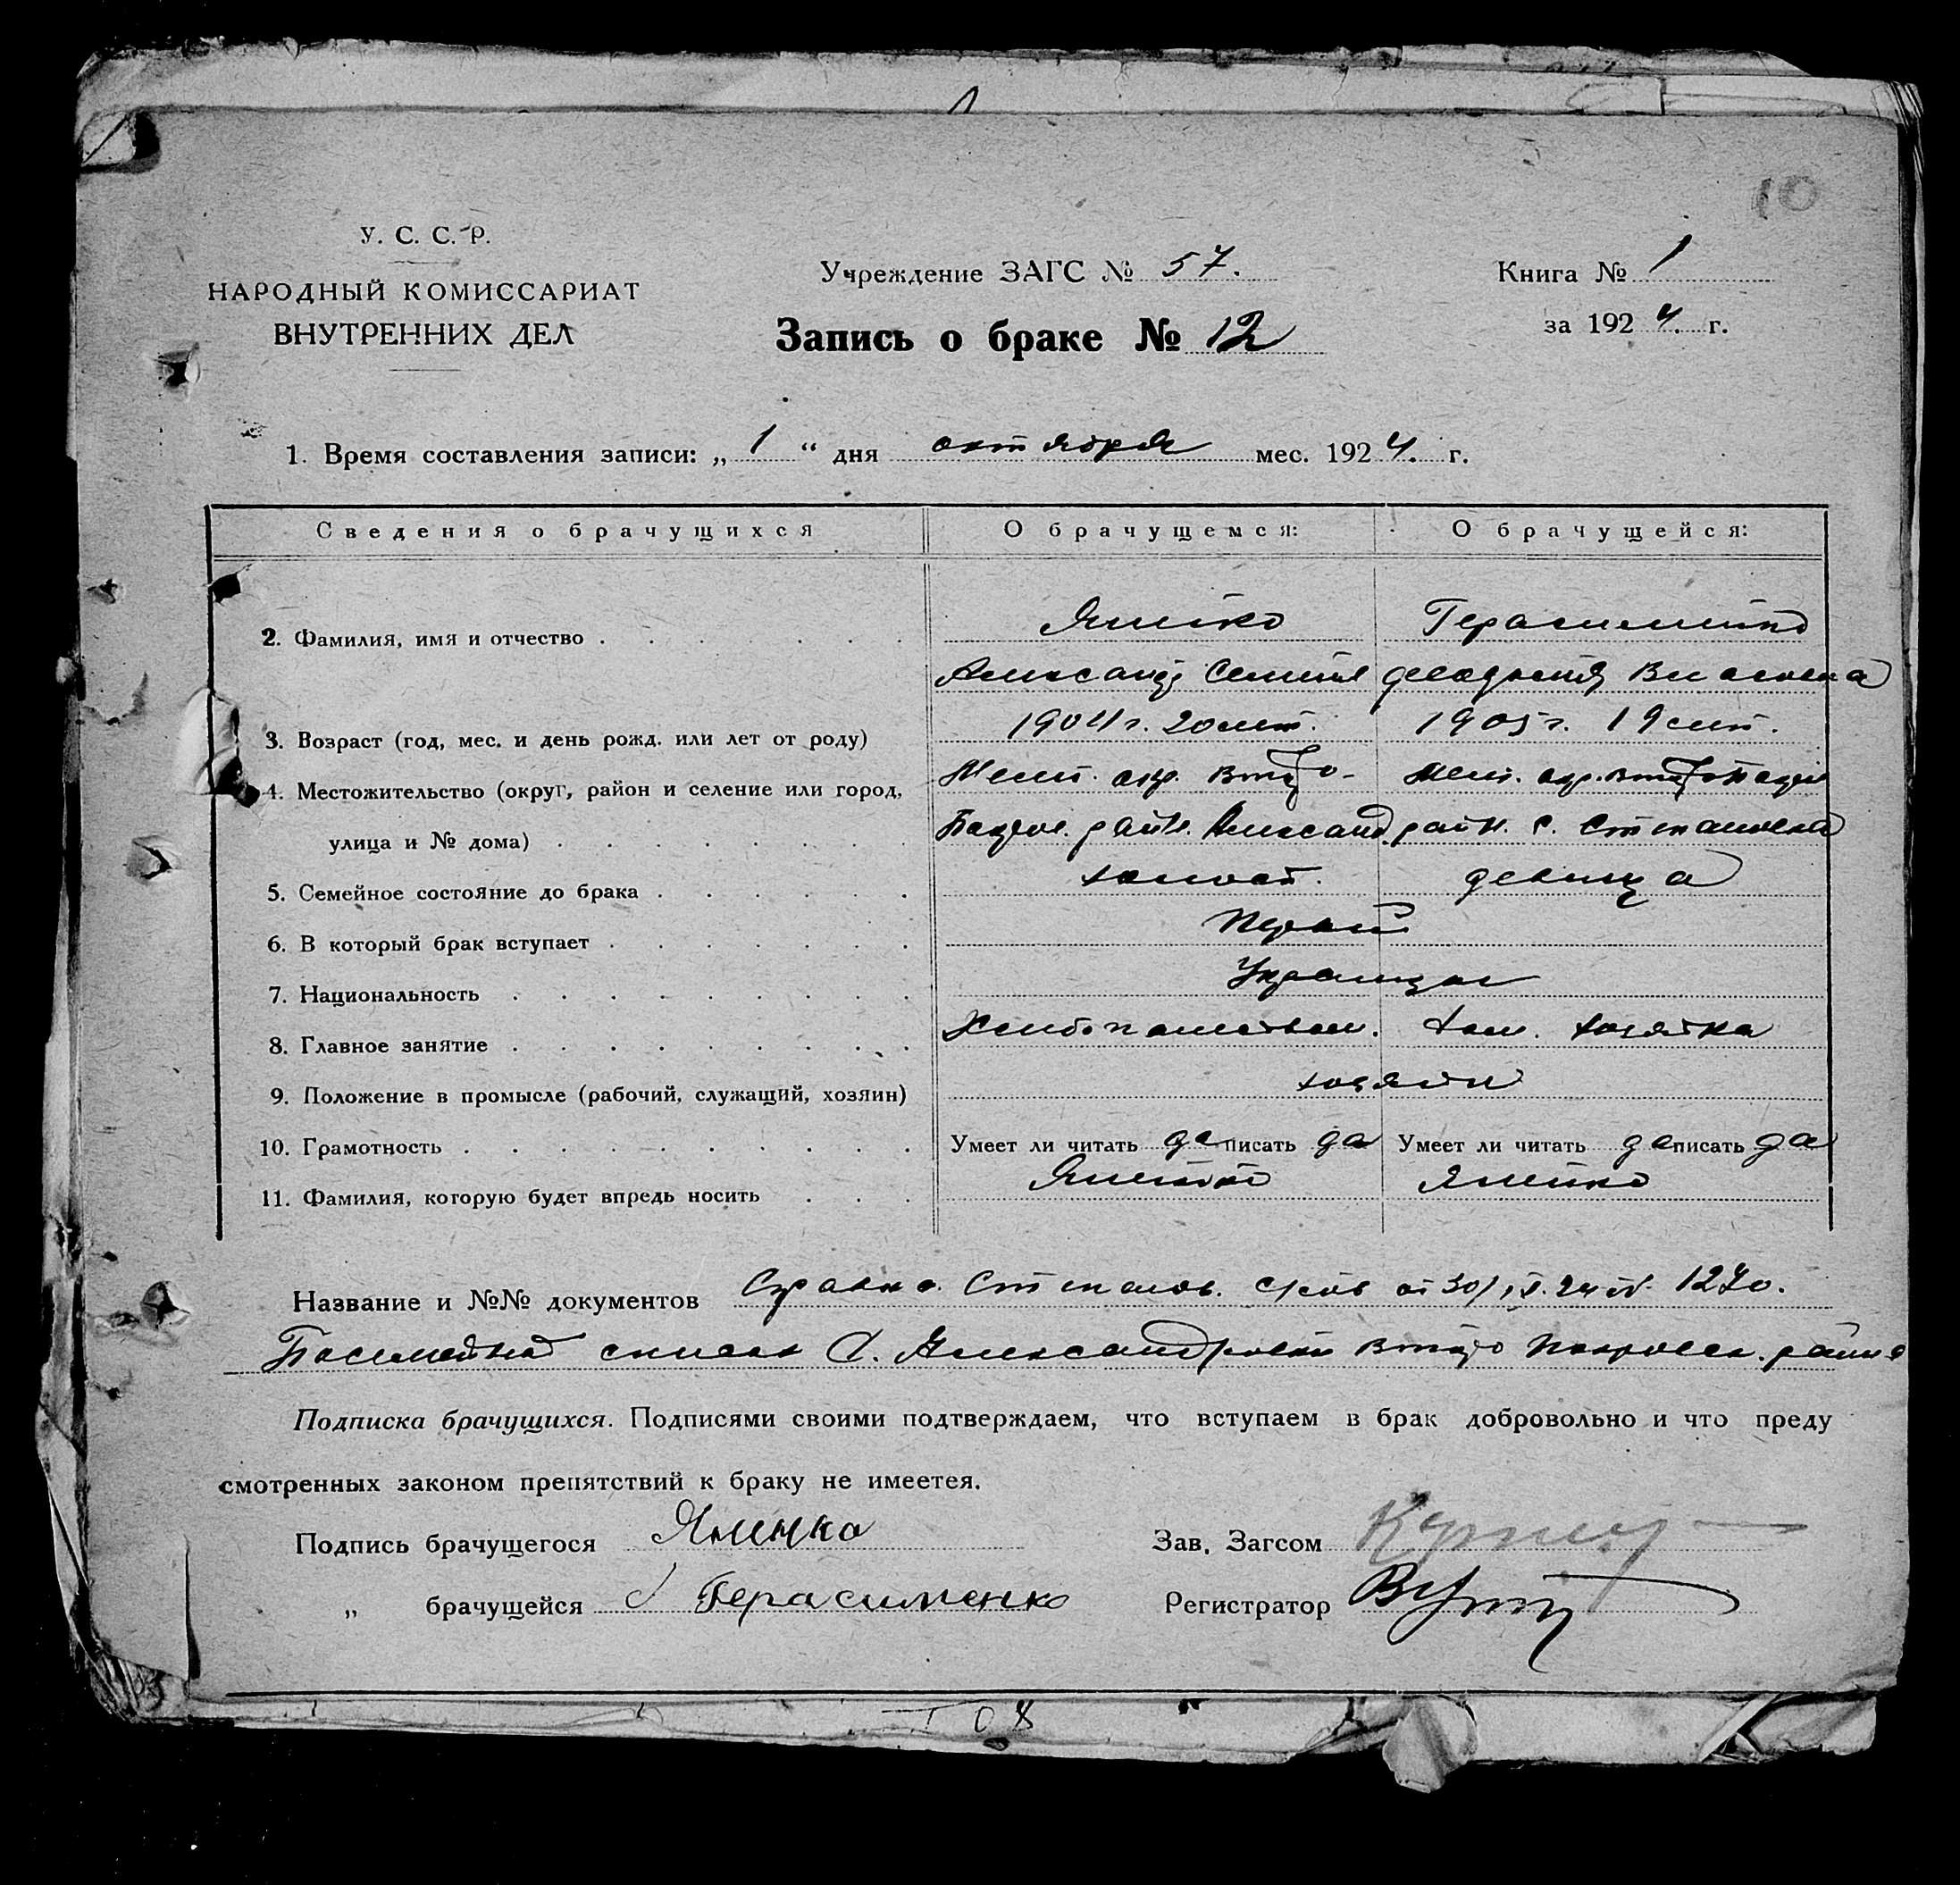 10
У. С. С. Р.
НАРОДНЫЙ КОМИССАРИАТ
ВНУТРЕННИХ ДЕЛ
Учреждение ЗАГС № 57.
Книга № 1
за 1924. г.
Запись о браке № 12
1. Время составления записи: „ 1 “ дня октября мес. 1924. г.
Сведения о брачущихся О брачущемся: О брачущейся:
2. Фамилия, имя и отчество Яненко Герасименко
Александр Семенов Власовна
3. Возраст (год, мес. и день рожд. или лет от роду) 1904 г. 20 лет. 1905 г. 19 лет.
4. Местожительство (округ, район и селение или город, окр. окр.
улица и № дома) Покров. район. Александ. район. с. Степановки
5. Семейное состояние до брака холост. девица
6. В который брак вступает Первый
7. Национальность Украинцы
8. Главное занятие Хлебопашеством. дом. хозяйка
9. Положение в промысле (рабочий, служащий, хозяин) хозяин
10. Грамотность Умеет ли читать да писать да Умеет ли читать да писать да
11. Фамилия, которую будет впредь носить Яненко Яненко
Название и №№ документов Справка Степанов. от 30/IX 24 № 1270.
Посемейный список С. Александровки Покровск. района
Подписка брачущихся. Подписями своими подтверждаем, что вступаем в брак добровольно и что преду
смотренных законом препятствий к браку не имеетея.
Подпись брачущегося Яненко Зав. Загсом
„ брачущейся Герасименко Регистратор
108